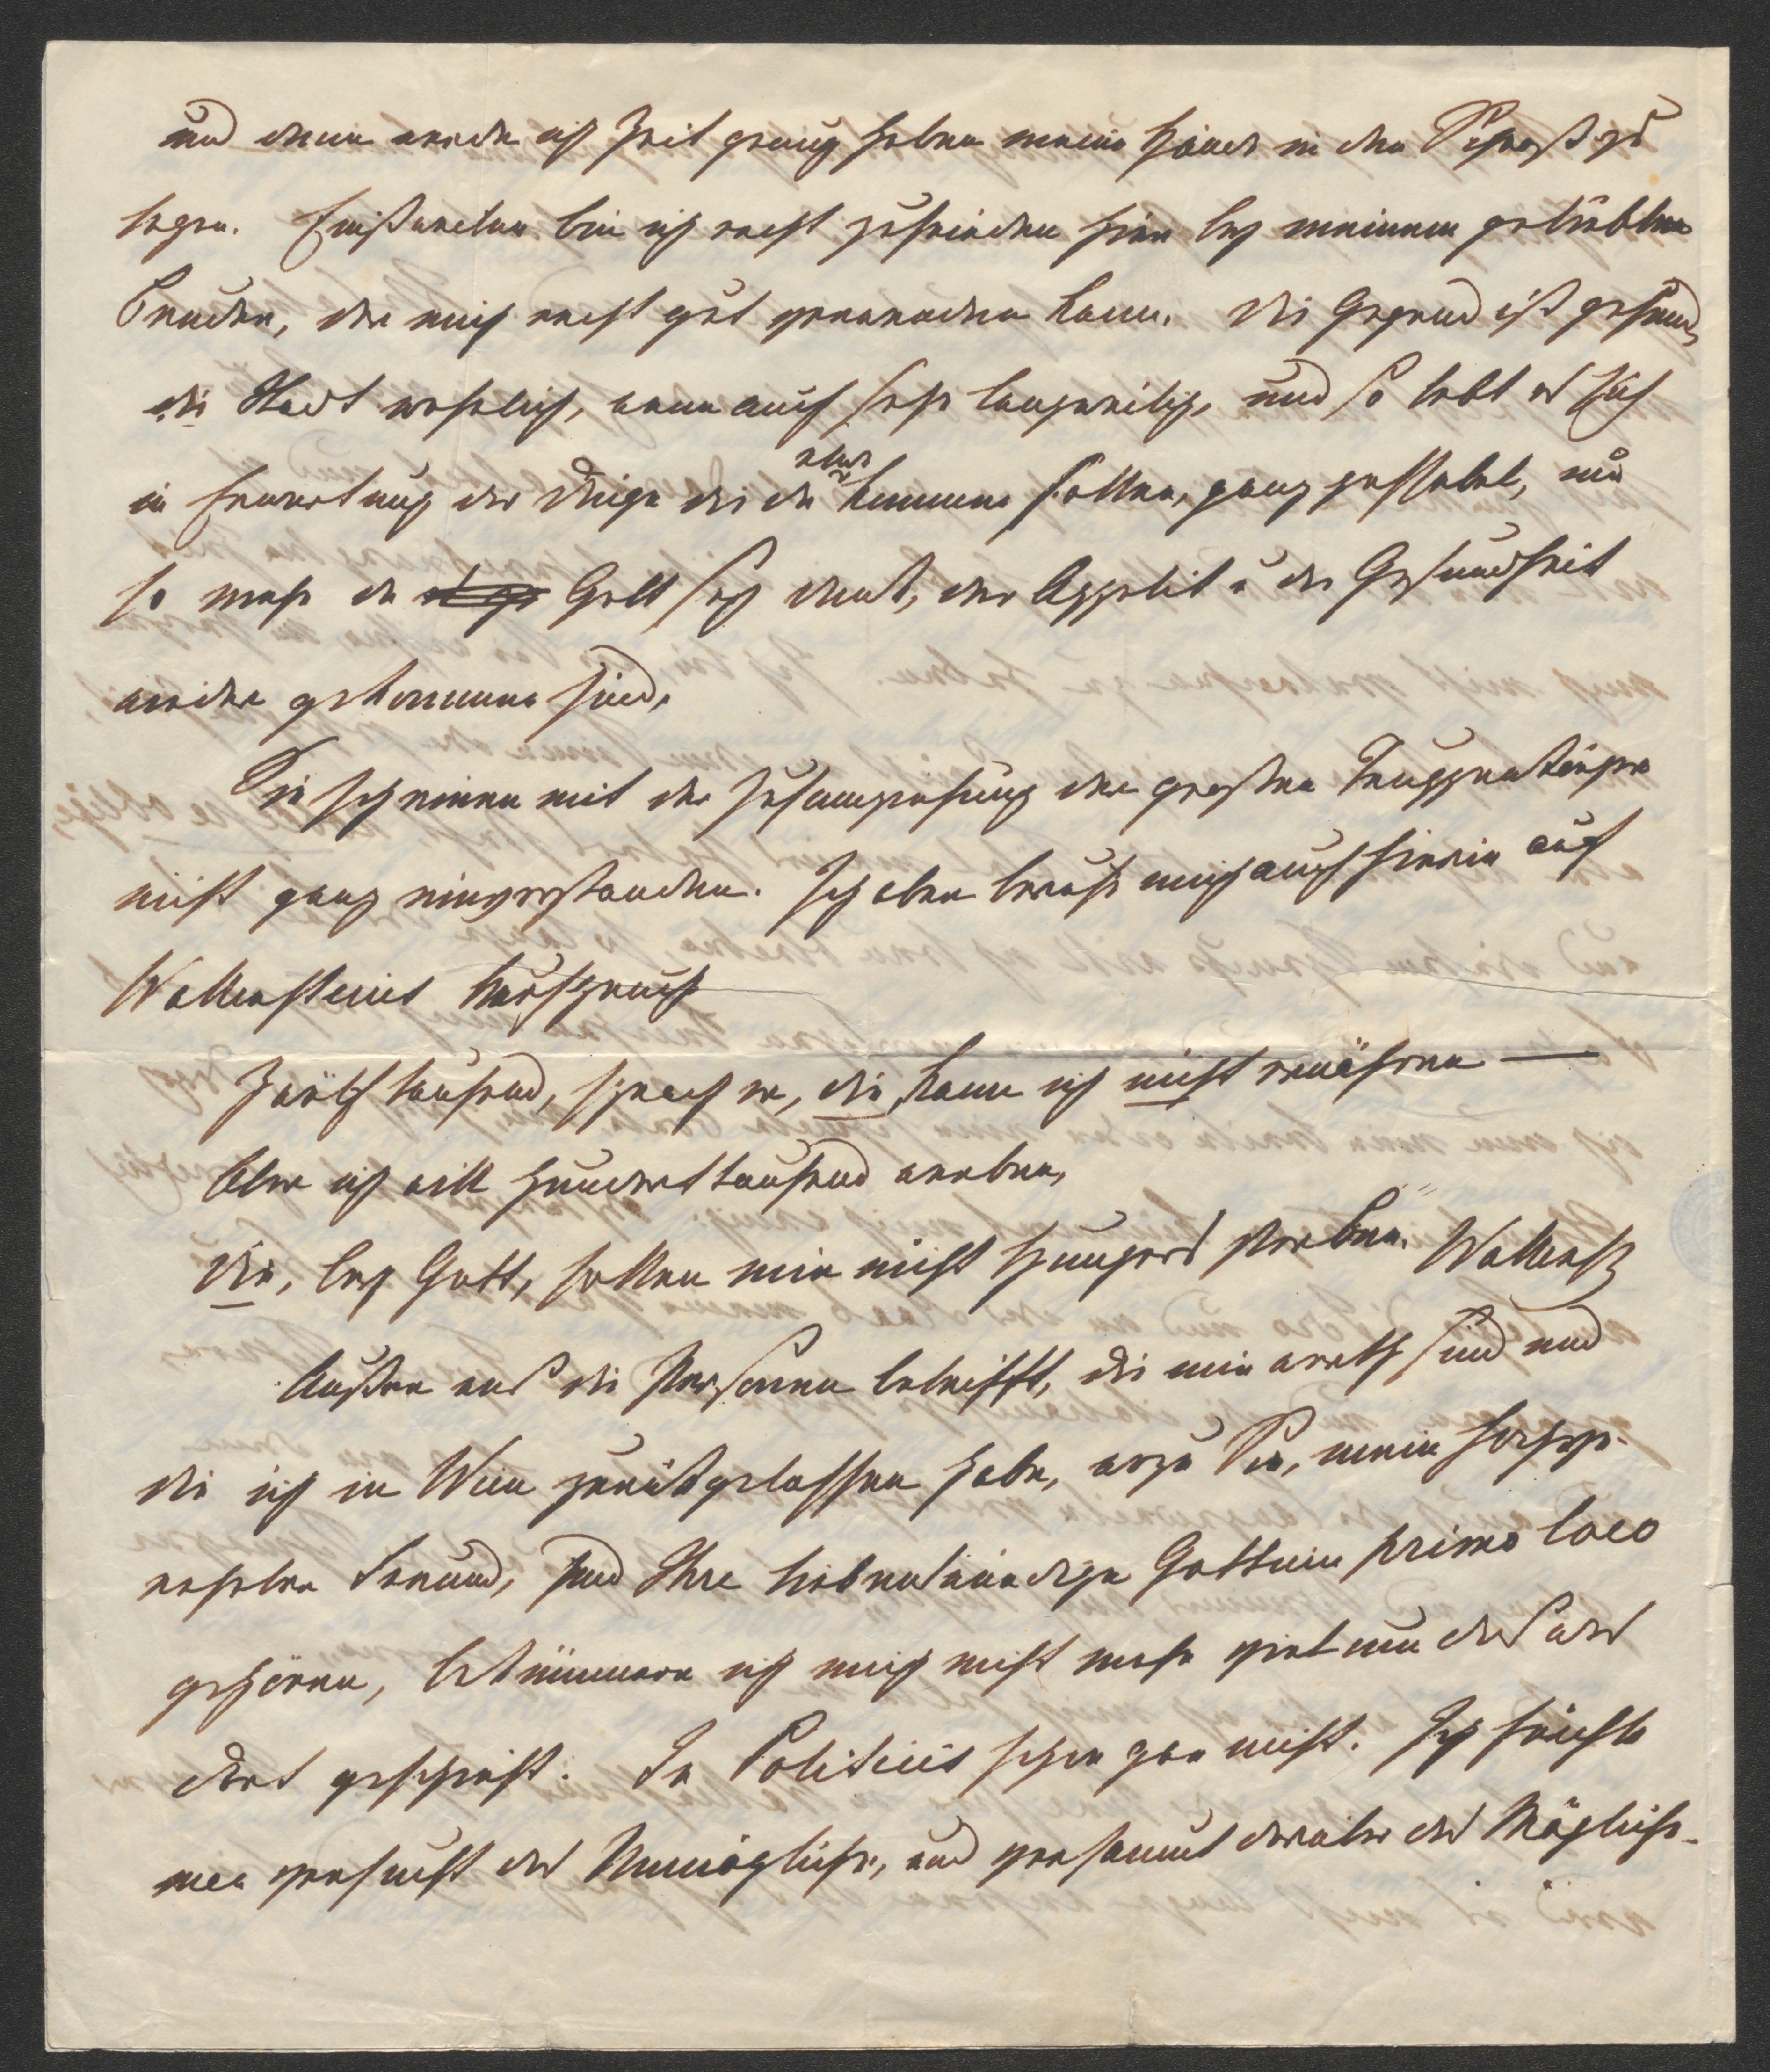 und dann werde ich Zeit genug haben meine Hände in den Schooß zu
legen. Einstweilen bin ich recht zufrieden hier bey meinem geliebten
Bruder, der mich recht gut verwenden kann. Die Gegend ist gesund,
die Stadt wohnlich, wenn auch sehr langweilig, und so lebt es sich
in Erwartung der Dinge die da etwa kommen sollen, ganz passabel, um
so mehr da Gott sey Dank, der Appetit u die Gesundheit
wieder gekommen sind.
Sie scheinen mit der Zusammziehung der großen Truppenkörper
nicht ganz einverstanden. Ich aber berufe mich auch hierin auf
Wallensteins Ausspruch
Zwölftausend, sprach er, die kann ich nicht ernähren —
Aber ich will Hunderttausend werben,
Die, bey Gott, sollen mir nicht Hungers sterben. Wallenst
Außer was die Personen betrifft, die mir werth sind und
die ich in Wien zurückgelassen habe, wozu Sie, mein hochge-
ehrter Freund, und Ihre liebenswürdige Gattin primo loco
gehören, bekümmere ich mich nicht mehr viel um das was
dort geschieht. In Politicis schon gar nicht. Ich fürchte
man versucht das Unmögliche, und versäumt darüber das Mögliche.